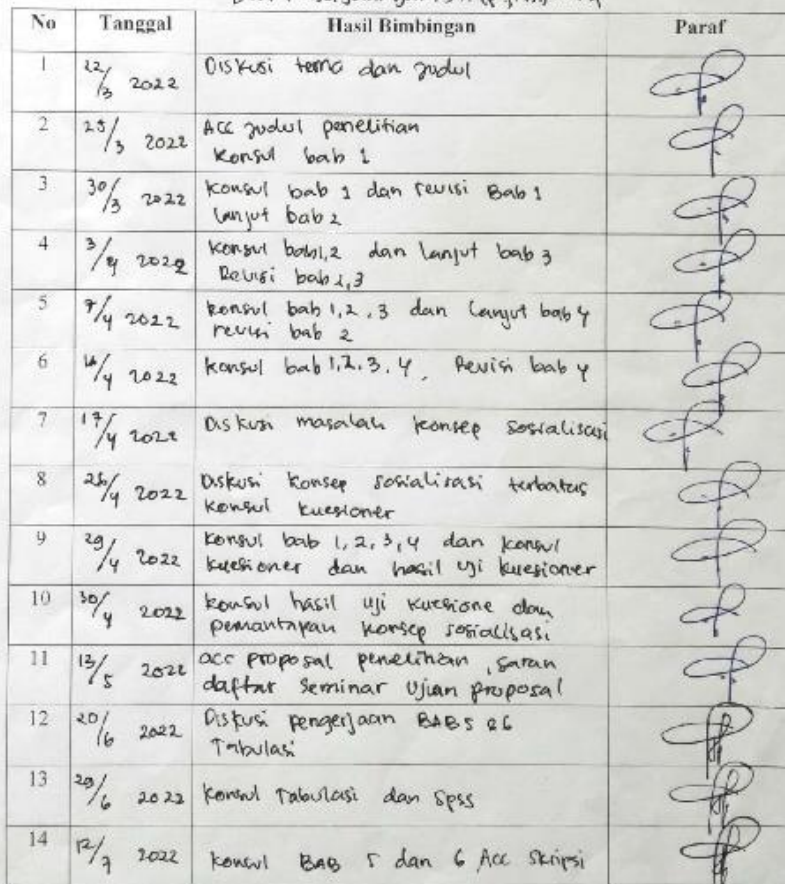 No Tanggal Hasil Bimbingan Paraf
1 22/3 2022 Diskusi tema dan judul
2 25/3 2022 Acc judul penelitian
Konsul bab 1
3 30/3 2022 Konsul bab 1 dan revisi Bab 1
lanjut bab 2
4 3/4 2022 Konsul bab 1,2 dan lanjut bab 3
Revisi bab 2,3
5 7/4 2022 konsul bab 1,2,3 dan lanjut bab 4
revisi bab 2
6 /4 2022 konsul bab 1,2,3,4, Revisi bab 4
7 17/4 2022 Diskusi masalah konsep sosialisasi
8 /4 2022 Diskusi konsep sosialisasi terbatas
konsul kuesioner
9 29/4 2022 Konsul bab 1,2,3,4 dan konsul
kuesioner dan hasil uji kuesioner
10 30/4 2022 konsul hasil uji kuesione dan
pemantapan konsep sosialisasi
11 13/5 2022 acc proposal penelitian, saran
daftar seminar ujian proposal
12 20/6 2022 Diskusi pengerjaan BAB 5 & 6
Tabulasi
13 29/6 2022 konsul Tabulasi dan Spss
14 12/7 2022 konsul BAB 5 dan 6 Acc Skripsi